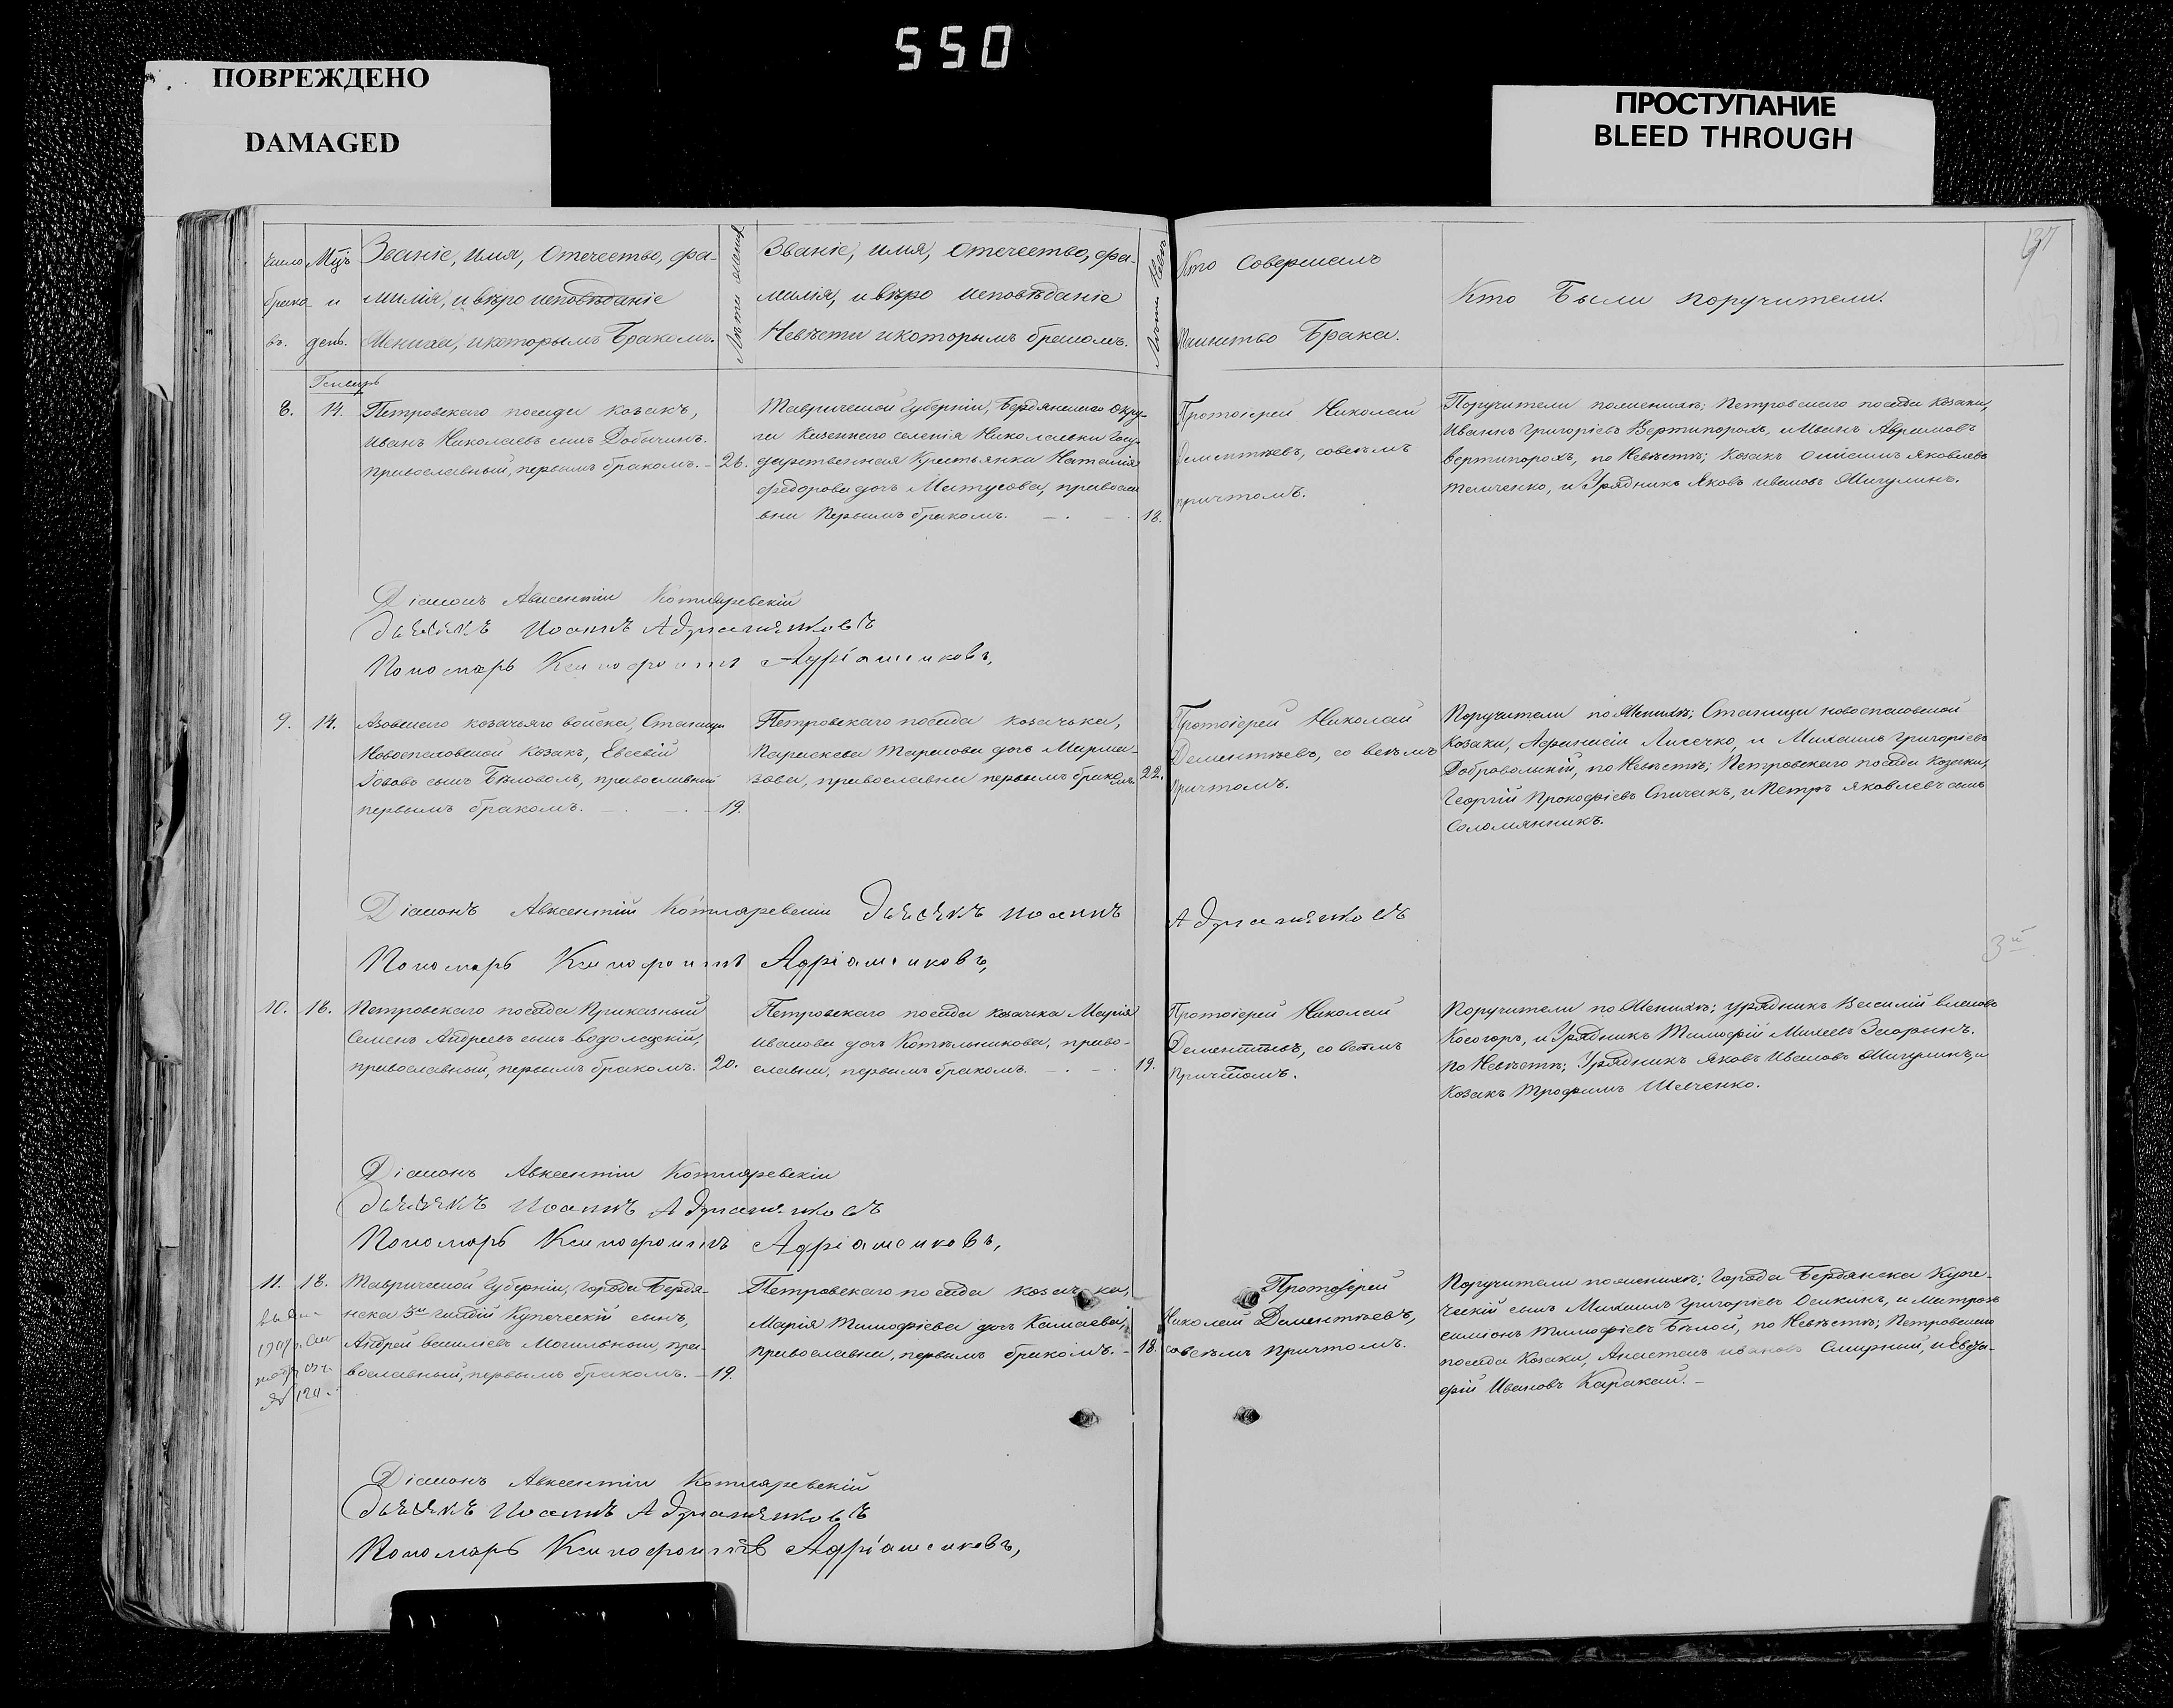 550
ПОВРЕЖДЕНО
DAMAGED
ПРОСТУПАНИЕ
BLEED THROUGH
137
Число браковъ.
Мцъ и день.
Званіе, имя, Отечество, фа-
милія, и вѣро исповѣданіе
Жениха, и которымъ Бракомъ.
Лѣта жених
Званіе, имя, Отечество, фа-
милія, и вѣро исповѣданіе
Невѣсты и которымъ бракомъ.
Лѣта Невѣ
Кто Совершалъ
Таинство Брака.
Кто Были поручители.
Генварь
8. 14.
Петровскаго посада козакъ,
Иванъ Николаевъ сынъ Добычинъ.
православный, первымъ бракомъ. - 26.
Таврической Губерніи, Бердянскаго Окру-
га Казеннаго селенія Николаевки Госу-
дарственная Крестьянка Наталія
Федорова дочь Матусова, правосла
вна Первымъ бракомъ. - 18.
Протоіерей Николай
Дементьевъ, совсѣмъ
причтомъ.
Поручители пожениху; Петровскаго посада Козаки,
Иванъ Григоріевъ Вертипорохъ, и Иванъ Абрамовъ
Вертипорохъ, по Невѣстѣ; Козакъ Онисимъ Яковлевъ
Теличенко, и Урядникъ Яковъ Ивановъ Мигулинъ.
Діаконъ Авксентій Котляревскій
Дьячекъ Иоаннъ Адрианенковъ
Пономарь Ксинофонтъ Адріаненковъ,
9. 14.
Азовскаго козачьяго войска, Станицы
Новоспасовской Козакъ, Евсевій
сынъ Бѣловолъ, православный
первымъ бракомъ. - 19.
Петровскаго посада козачька,
Параскева Тарасова дочь Марма-
зова, православна первымъ бракомъ. 22.
Протоіерей Николай
Дементьевъ, со всѣмъ
Причтомъ.
Поручители по Женихѣ; Станицы новоспасовской
Козаки, Афанасій Лисечко, и Михаилъ Григоріевъ
Добровольскій, по Невѣстѣ; Петровскаго посада Козаки,
Георгій Прокофіевъ Спичакъ, и Петръ Яковлевъ сынъ
Соломянникъ.
Діаконъ Авксентій Котляревскій Дьячекъ Иоаннъ Адрианенковъ
Пономарь Ксинофонтъ Адріаненковъ,
3й
10. 16.
Петровскаго посада Приказный
Семенъ Андреевъ сынъ Водолазскій,
православный, первымъ бракомъ. 20.
Петровскаго посада козачька Марія
Иванова дочь Котельникова, право-
славна, первымъ бракомъ. - 19.
Протоіерей Николай
Дементьевъ, со всѣмъ
Причтомъ.
Поручители по Женихѣ; Урядникъ Василій
Косогоръ, и Урядникъ Тимофій Михеевъ
по Невѣстѣ; Урядникъ Яковъ Ивановъ Мигулинъ, и
Козакъ Трофимъ Шевченко.
Діаконъ Авксентій Котляревскій
Дьячекъ Иоаннъ Адрианенковъ
Пономарь Ксинофонтъ Адріаненковъ,
11. 18.
Таврической Губерніи, Города Бердя-
нска 3й гилдіи Купеческій сынъ,
Андрей Василіевъ Могильный, пра-
вославный, первымъ бракомъ. - 19.
Петровскаго посада козачька,
Марія Тимофіева дочь Камаева,
православна, первымъ бракомъ. - 18.
Протоіерей
Николай Дементьевъ,
совсѣмъ причтомъ.
Поручители поженихѣ; Города Бердянска Купе-
ческій сынъ Михаилъ Григоріевъ и Матрозъ
Симіонъ Тимофіевъ Бѣлой, по Невѣстѣ; Петровскаго
посада Козаки, Ивановъ Смирный, и
Ивановъ Каракай. -
Діаконъ Авксентій Котляревскій
Дьячекъ Иоаннъ Адрианенковъ
Пономарь Ксинофонтъ Адріаненковъ,